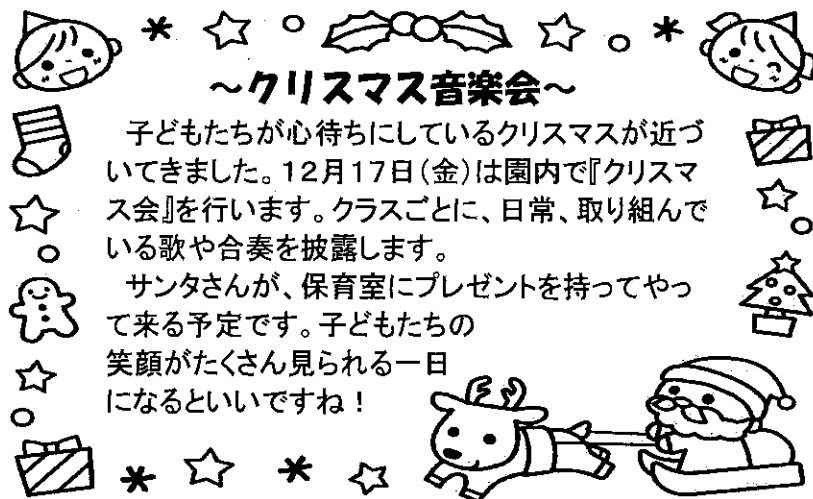 ～クリスマス音楽会～
子どもたちが心待ちにしているクリスマスが近づ
いてきました。12月17日(金)は園内で『クリスマ
ス会』を行います。クラスごとに、日常、取り組んで
いる歌や合奏を披露します。
サンタさんが、保育室にプレゼントを持ってやっ
て来る予定です。子どもたちの
笑顔がたくさん見られる一日
になるといいですね！